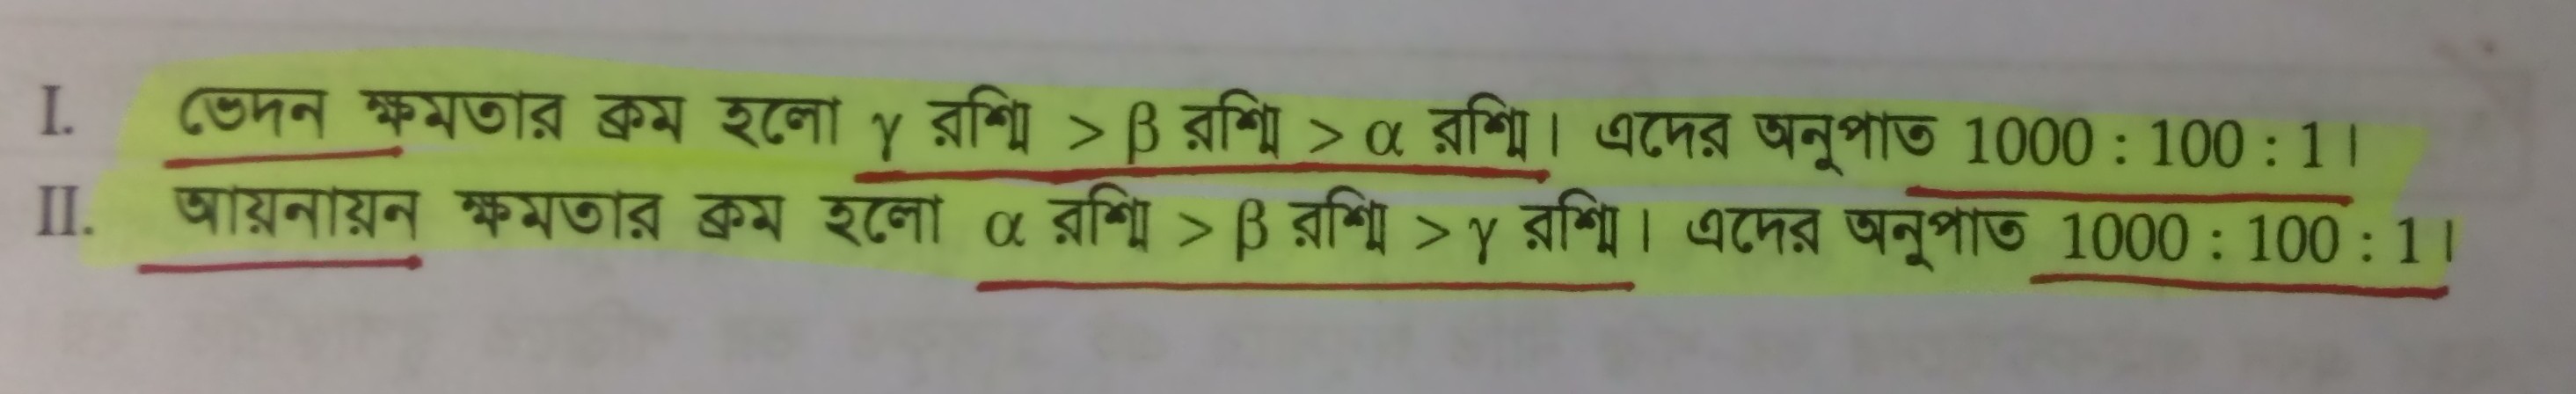 I. ভেদন ক্ষমতার ক্রম হলো γ রশ্মি > β রশ্মি > α রশ্মি। এদের অনুপাত 1000 : 100 : 1।
II. আয়নায়ন ক্ষমতার ক্রম হলো α রশ্মি > β রশ্মি > γ রশ্মি। এদের অনুপাত 1000 : 100 : 1।